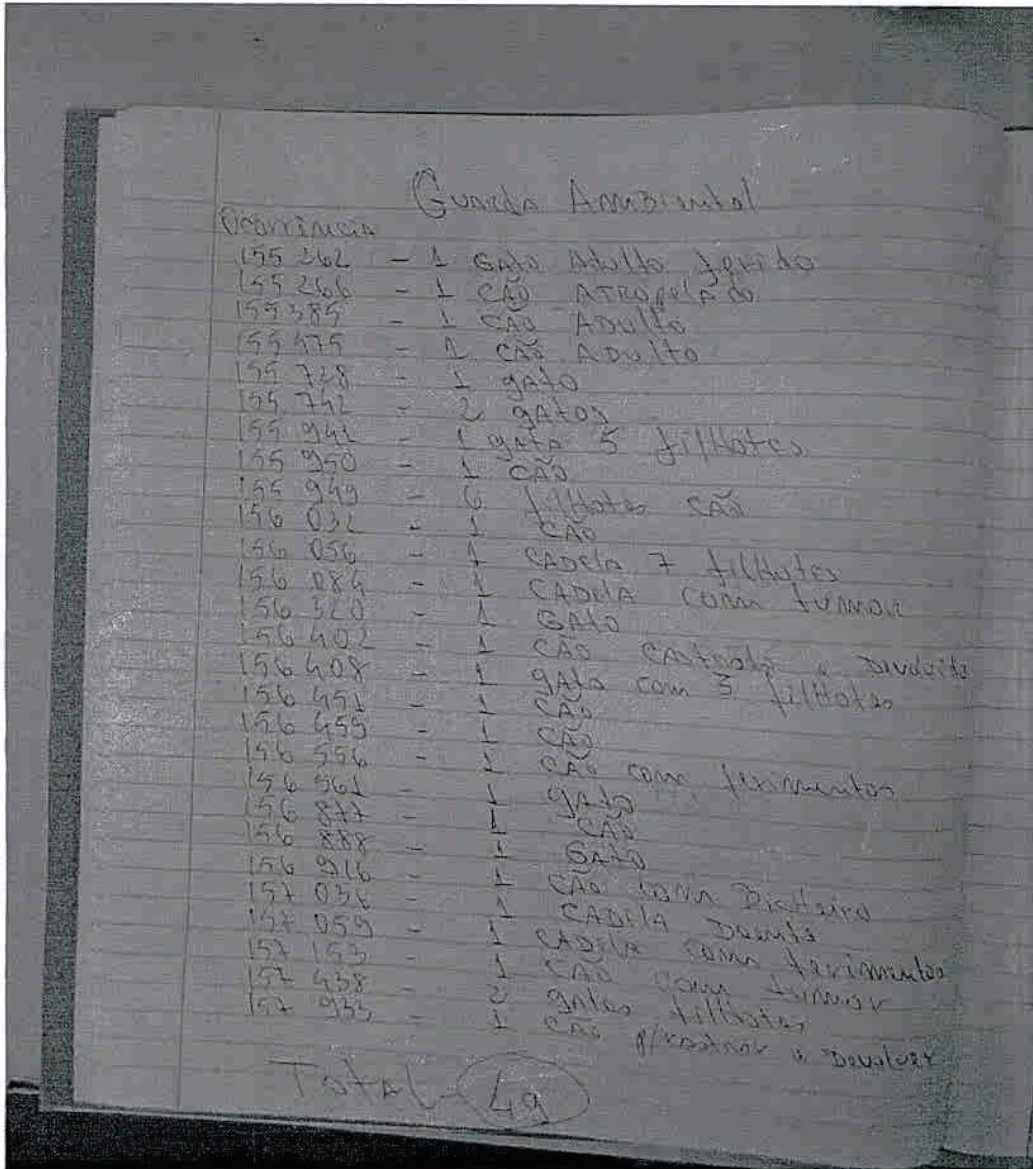 Guarda Ambiental
Ocorrência
155 262 - 1 GATO Adulto ferido
155 266 - 1 CÃO ATROPELADO
155 385 - 1 CÃO ADULTO
155 475 - 1 CÃO ADULTO
155 728 - 1 gATO
155 742 - 2 gATOS
155 941 - 1 gATA 5 filHotes
155 950 - 1 CÃO
155 949 - 6 filHotes CÃO
156 032 - 1 CÃO
156 056 - 1 CADELA 7 filHotes
156 084 - 1 CADELA COM tumor
156 320 - 1 GATO
156 402 - 1 CÃO CAstrado e
156 408 - 1 gATA com 3 filHotes
156 451 - 1 CÃO
156 459 - 1 CÃO
156 556 - 1 CÃO com ferimentos
156 561 - 1 gATO
156 877 - 1 CÃO
156 888 - 1 GATO
156 916 - 1 CÃO com BicHeira
157 036 - 1 CADELA Doente
157 059 - 1 CADELA com ferimentos
157 153 - 1 CÃO com tumor
157 438 - 2 gatos filHotes
157 933 - 1 CÃO p/castrar e Devolver
Total - 49